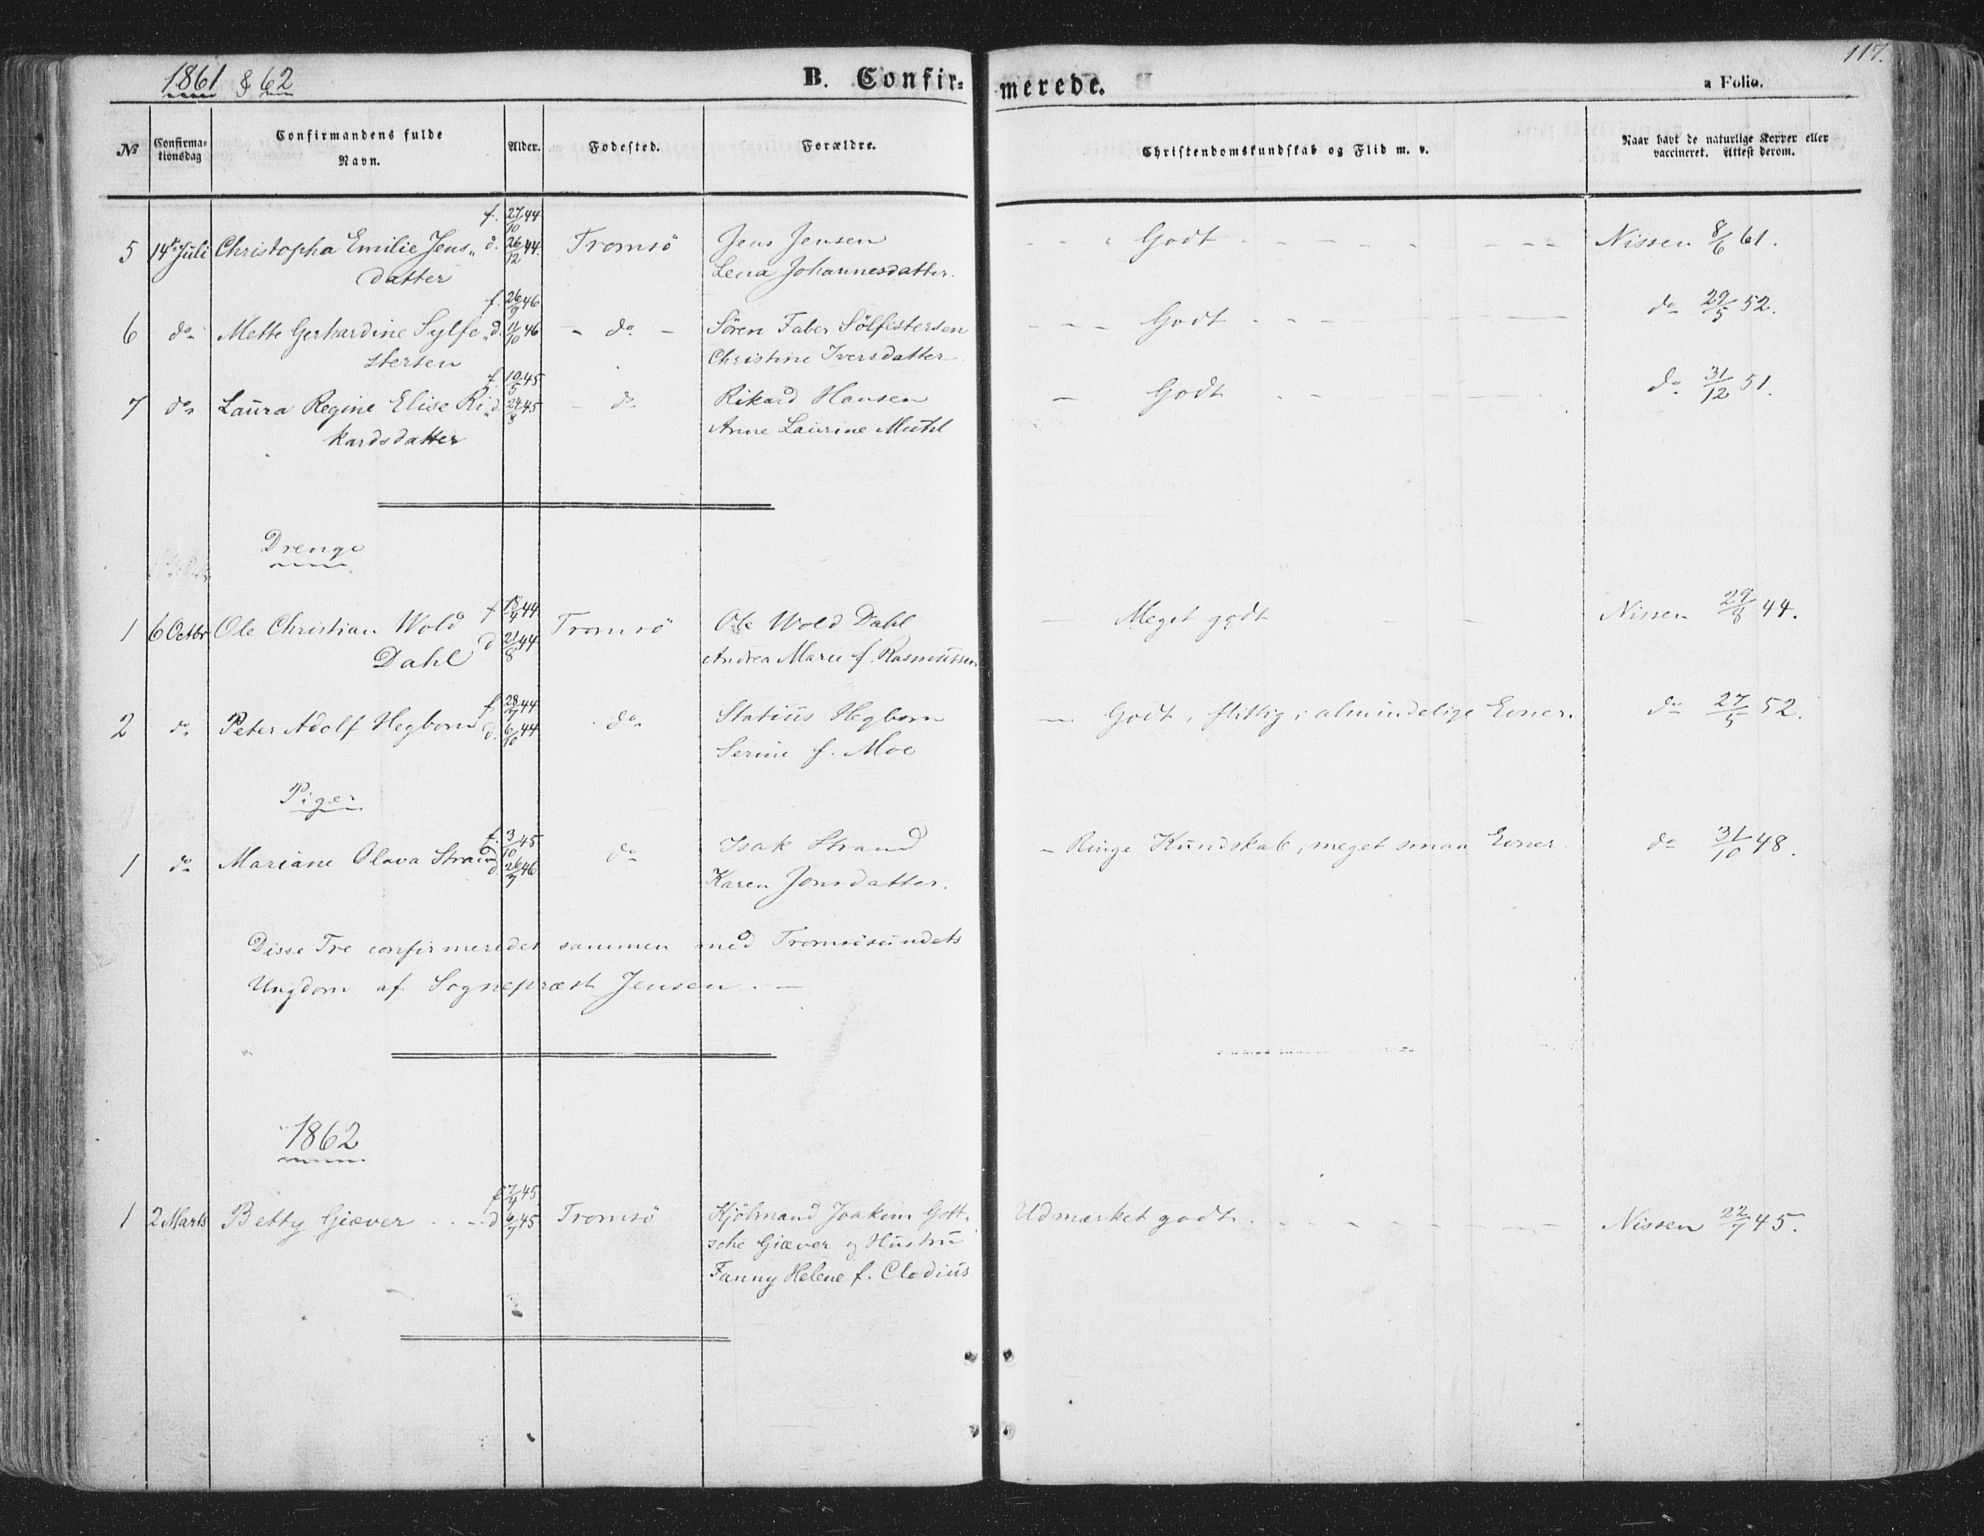 1861 & 62
B. Confir=
merede.
117.
a Folio.
№
Confirma-
tionsdag
Confirmandens fulde
Navn.
Alder.
Fodested.
Forældre.
Christendomskundskab og Flid m. v.
Naar havt de naturlige Kopper eller
vaccineret. Attest derom.
f. 27/10 44
5 14de Juli Christopha Emilie Jens„ d. 26/12 44. Tromsö Jens Jensen - - - Godt - - - Nissen 8/6 61.
datter Lena Johannesdatter.
f. 26/9 46
6 do Mette Gerhardine Sylfe„ d. 11/10 46 - do - Sören Faber Sölfestersen - - - Godt - - - do 29/5 52.
stersen Christine Iversdatter.
f. 10/5 45
7 do Laura Regine Elise Ri„ d. 24/8 45 - do Rikard Hansen - Godt - - - do 31/12 51.
kardsdatter Anne Laurine
Drenge
1 6 Octbr Ole Christian Wold f 44 Tromsö Ole Wold Dahl - Meget godt - - Nissen 29/8 44.
Dahl d 21/8 44 Andrea Marie f. Rasmussen
2 do Peter Adolf Hegbom f. 28/7 44 do Statius Hegbom - Godt, flittig; almindelige Evner. do 27/5 52.
d. 6/10 44 Serine f. Moe
Piger
1 do Mariane Olava Strand f. 3/10 45 do Isak Strand - Ringe Kundskab, meget smaa Evner. do 31/10 48.
d. 26/7 46 Karen Jonsdatter.
Disse Tre confirmeredes sammen med Tromsösundets
Ungdom af Sognepræst Jensen. -
1862
f 7/4 45
1 2 Marts Betty Giæver - - - d 6/7 45 Tromsö Kjöbmand Joakim Gott- Udmærket godt. - - - Nissen 22/7 45.
sche Giæver og Hustru
Fanny Helene f. Clodius